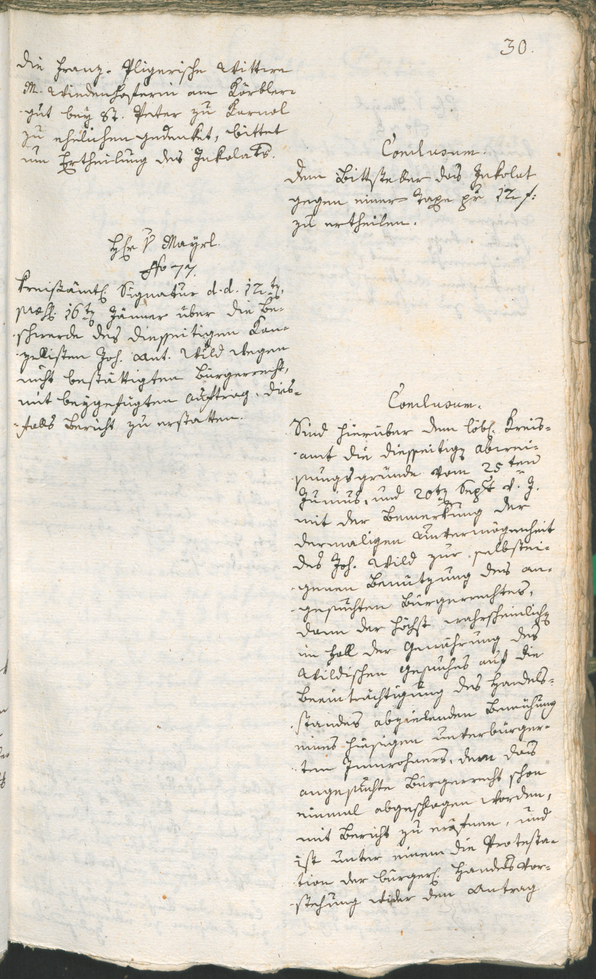 30.
die Franz. Pligerische Wittwe
M. Niedenhoferin am Körbler-
gut bey St. Peter zu Karnol
zu ehelichen gedenket, bittet
um Ertheilung des Inkolats.
Conclusum.
Dem Bittsteller das Inkolat
gegen einer Taxe pr 12 f:
zu ertheilen.
Hr. v Mayrl.
No 77.
Kreisämtl. Signatur d. d. 12t.
praes. 16t. Jänner über die Be-
schwerde des diesseitigen Kan-
zellisten Joh. Ant. Wild wegen
nicht bestättigten Bürgerrecht,
mit beygefügten Auftrag, dies-
falls Bericht zu erstatten.
Conclusum.
Sind hierüber dem löbl. Kreis-
amt die diesseitige Abwei-
sungsgründe vom 25ten
Junius, und 20t. Sept. v. J.
mit der Bemerkung der
dermaligen Unvermögenheit
des Joh. Wild zur selbstei-
genen Benützung des an-
gesuchten Bürgerrechtes,
dann der höchst wahrscheinlich
im Fall der Gewährung des
Wildischen Gesuches auf die
Beeinträchtigung des Handels-
standes abzielenden Bemühung
eines hiesigen unverbürger-
ten Innwohners, dem das
angesuchte Bürgerrecht schon
einmal abgeschlagen worden,
mit Bericht zu eröfnen, und
ist unter einem die Protesta-
tion der bürgerl. Handelsvor-
stehung wider den Antrag